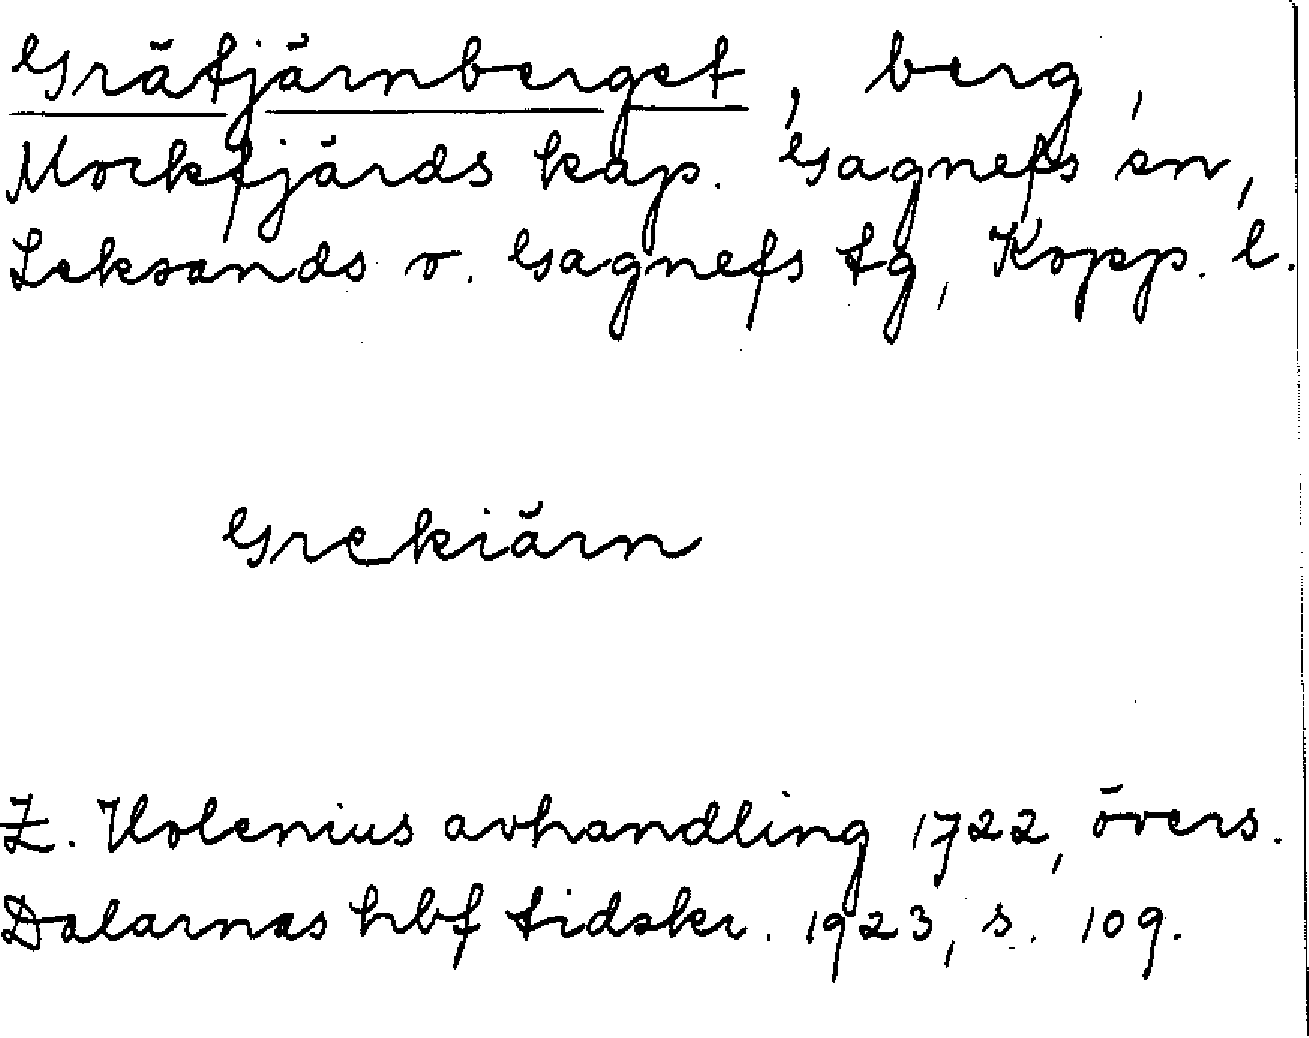 Grätjärnberget, berg,
Mockfjärds kap. Gagnefs sn,
Leksands o. Gagnefs tg, Kopp. l.
Grekiärn
Z. Holenius avhandling 1722, övers.
Dalarnas hbf tidskr. 1923, s. 109.